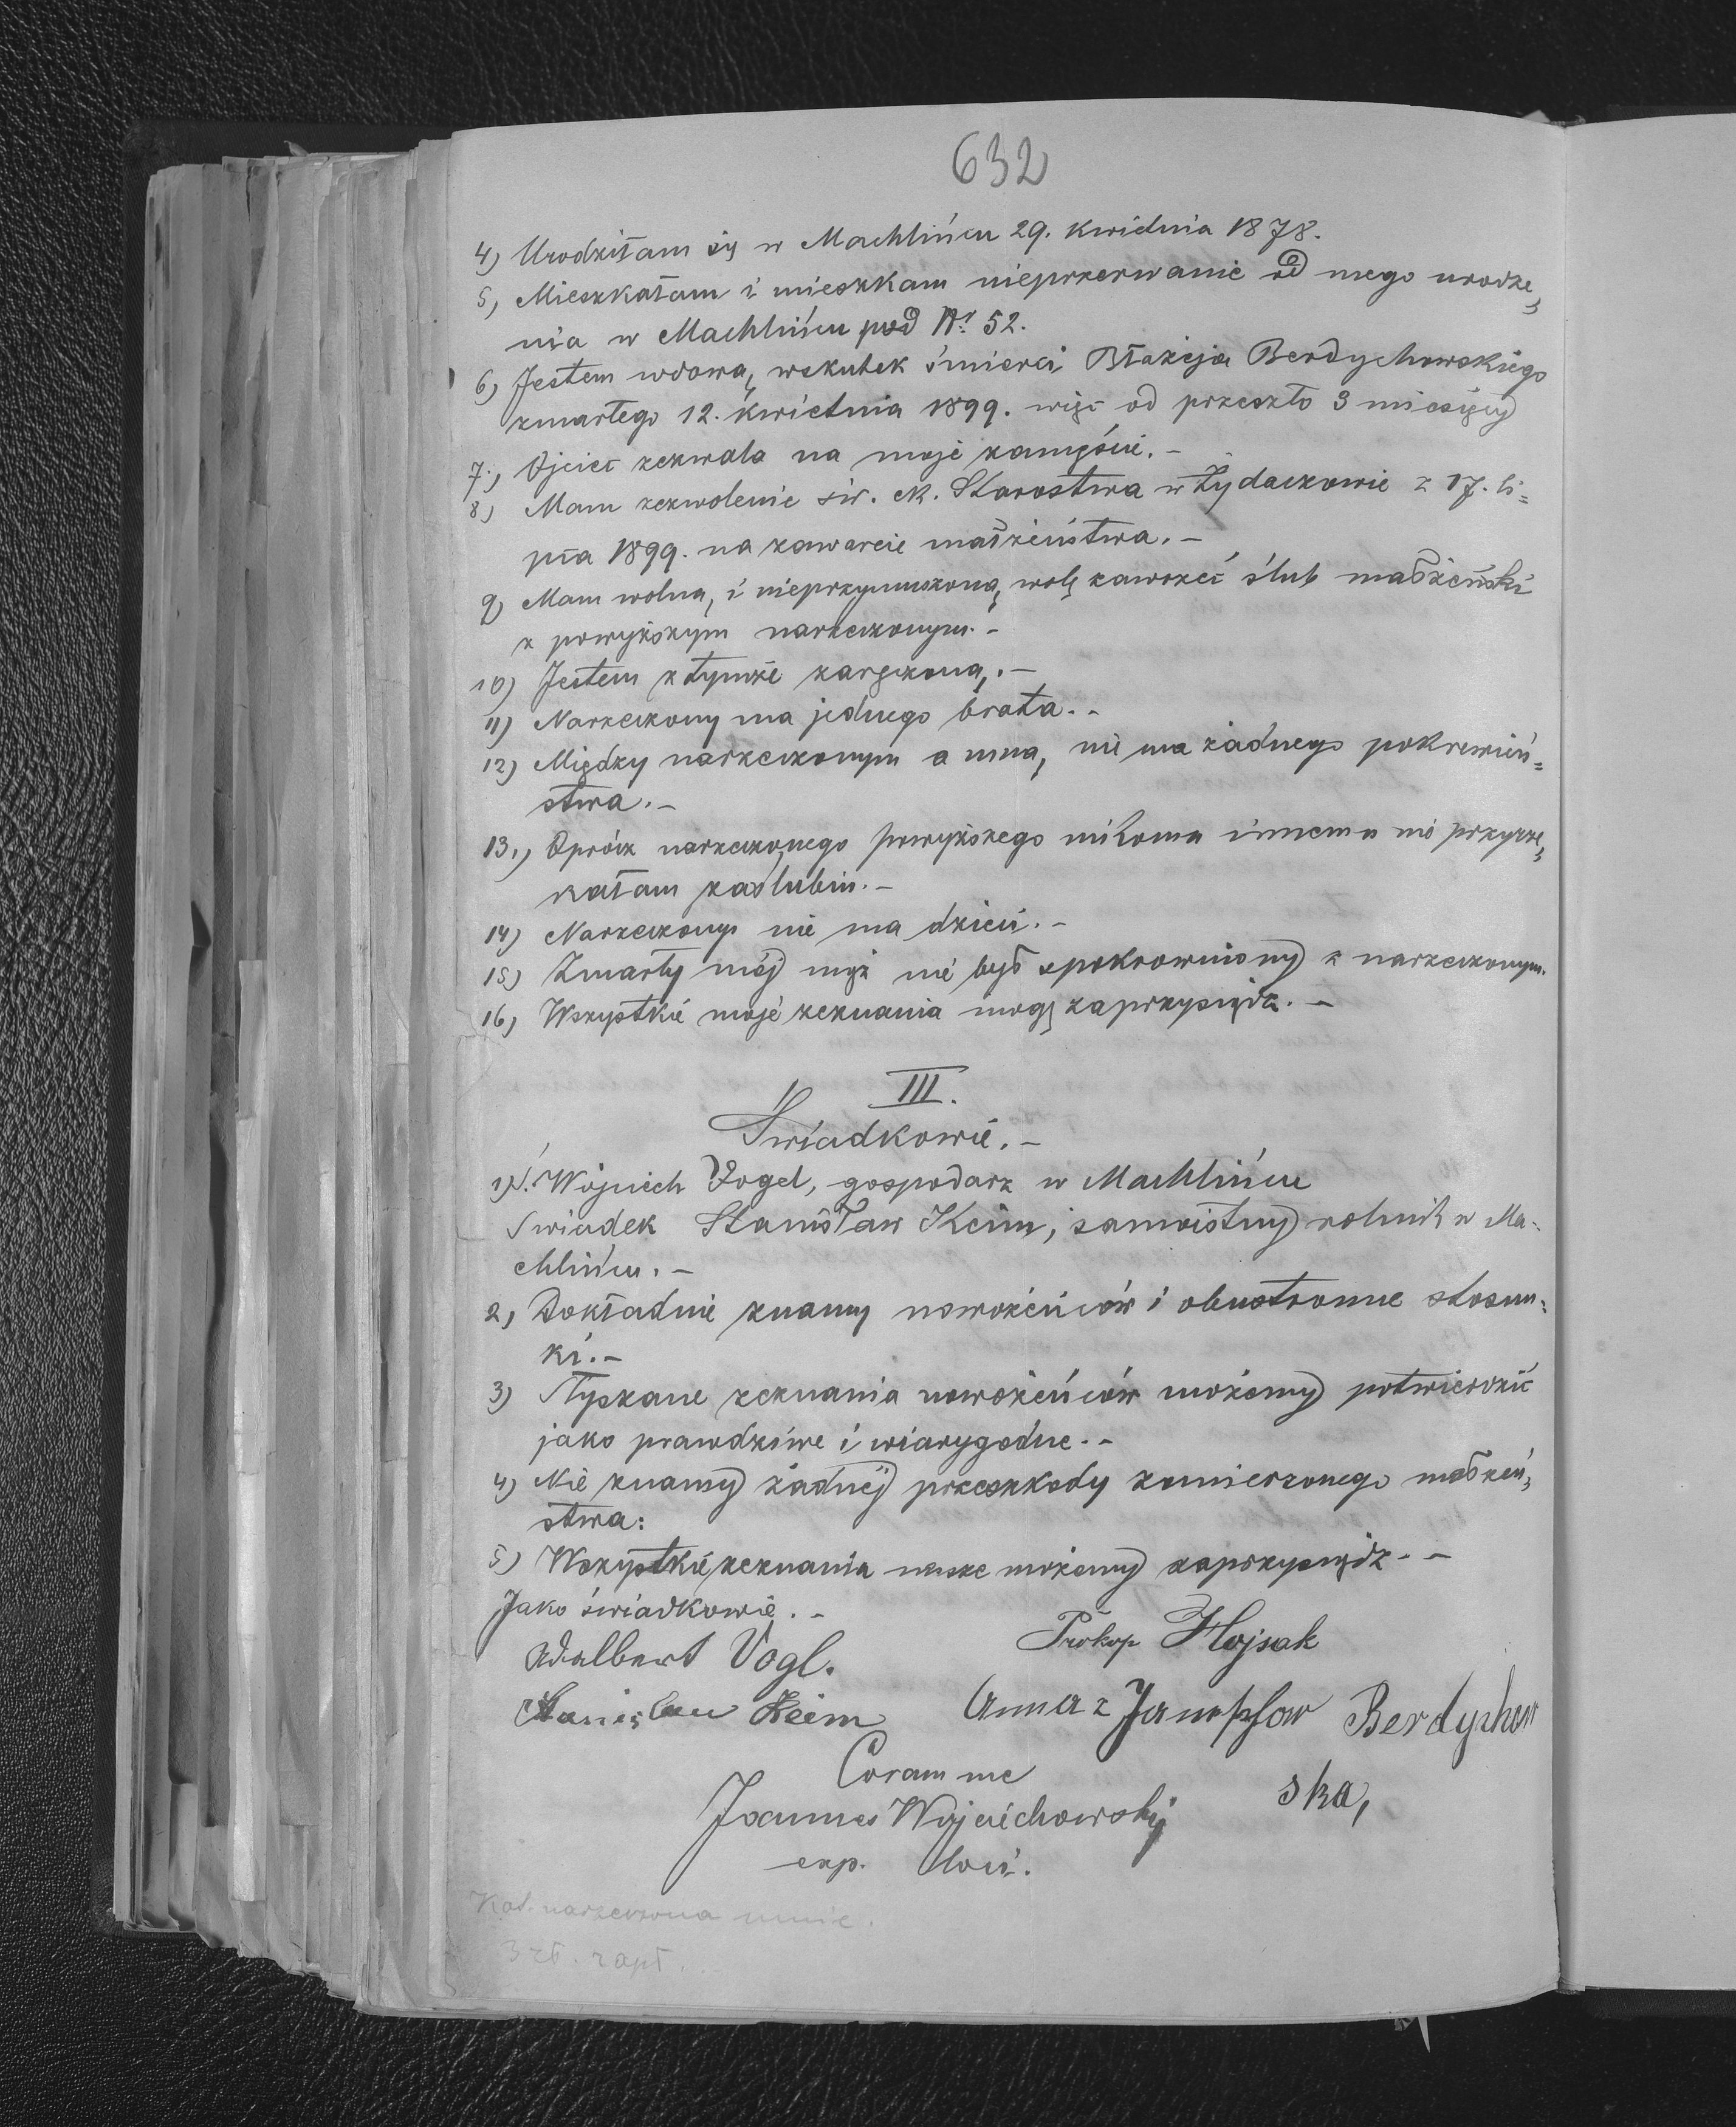 632
4) Urodziłam się w Machlińcu 29. kwietnia 1878.
5) Mieszkałam i mieszkam nieprzerwanie od mego urodze„
nia w Machlińcu pod Nr. 52.
6) Jestem wdową, wskutek śmierci Błażeja Berdychowskiego
zmarłego 12. kwietnia 1899. więc od przeszło 3 miesięcy
7.) Ojciec zezwala na moje zamęście. -
8) Mam zezwolenie św. ck. Starostwa w Żydaczowie z 17. li=
pca 1899. na zawarcie małżeństwa. -
9) Mam wolną, i nieprzymuszoną, wolę zawrzeć ślub małżeński
z powyższym narzeczonym. -
10) Jestem z tymże zaręczoną. -
11) Narzeczony ma jednego brata. -
12) Między narzeczonym a mną, nie ma żadnego pokrewień=
stwa. -
13.) Oprócz narzeczonego powyższego nikomu innemu nie przyrze„
kałam zaślubin. -
14) Narzeczony nie ma dzieci. -
15) Zmarły mój mąż nie był spokrewniony z narzeczonym.
16) Wszystkie moje zeznania mogę zaprzysiądz. -
III.
Świadkowie. -
1) Ś. Wojciech Vogel, gospodarz w Machlińcu
Świadek Stanisław Keim, samoistny rolnik w Ma-
chlińcu. -
2) Dokładnie znamy nowożeńców i obustronne stosun=
ki. -
3) Słyszane zeznania nowożeńców możemy potwierdzić
jako prawdziwe i wiarygodne. -
4) Nie znamy żadnej przeszkody zamierzonego małżeń„
stwa:
5) Wszystkie zeznania nasze możemy zaprzysiądz. -
Jako świadkowie. -
Adalbert Vogl.
Prokop Hojsak
Stanislau Keim
Anna z Berdychow
ska,
Coram me
Joannes Wojciechowski
exp. loci.
Kat. narzeczona umie.
3 zł. zapł.